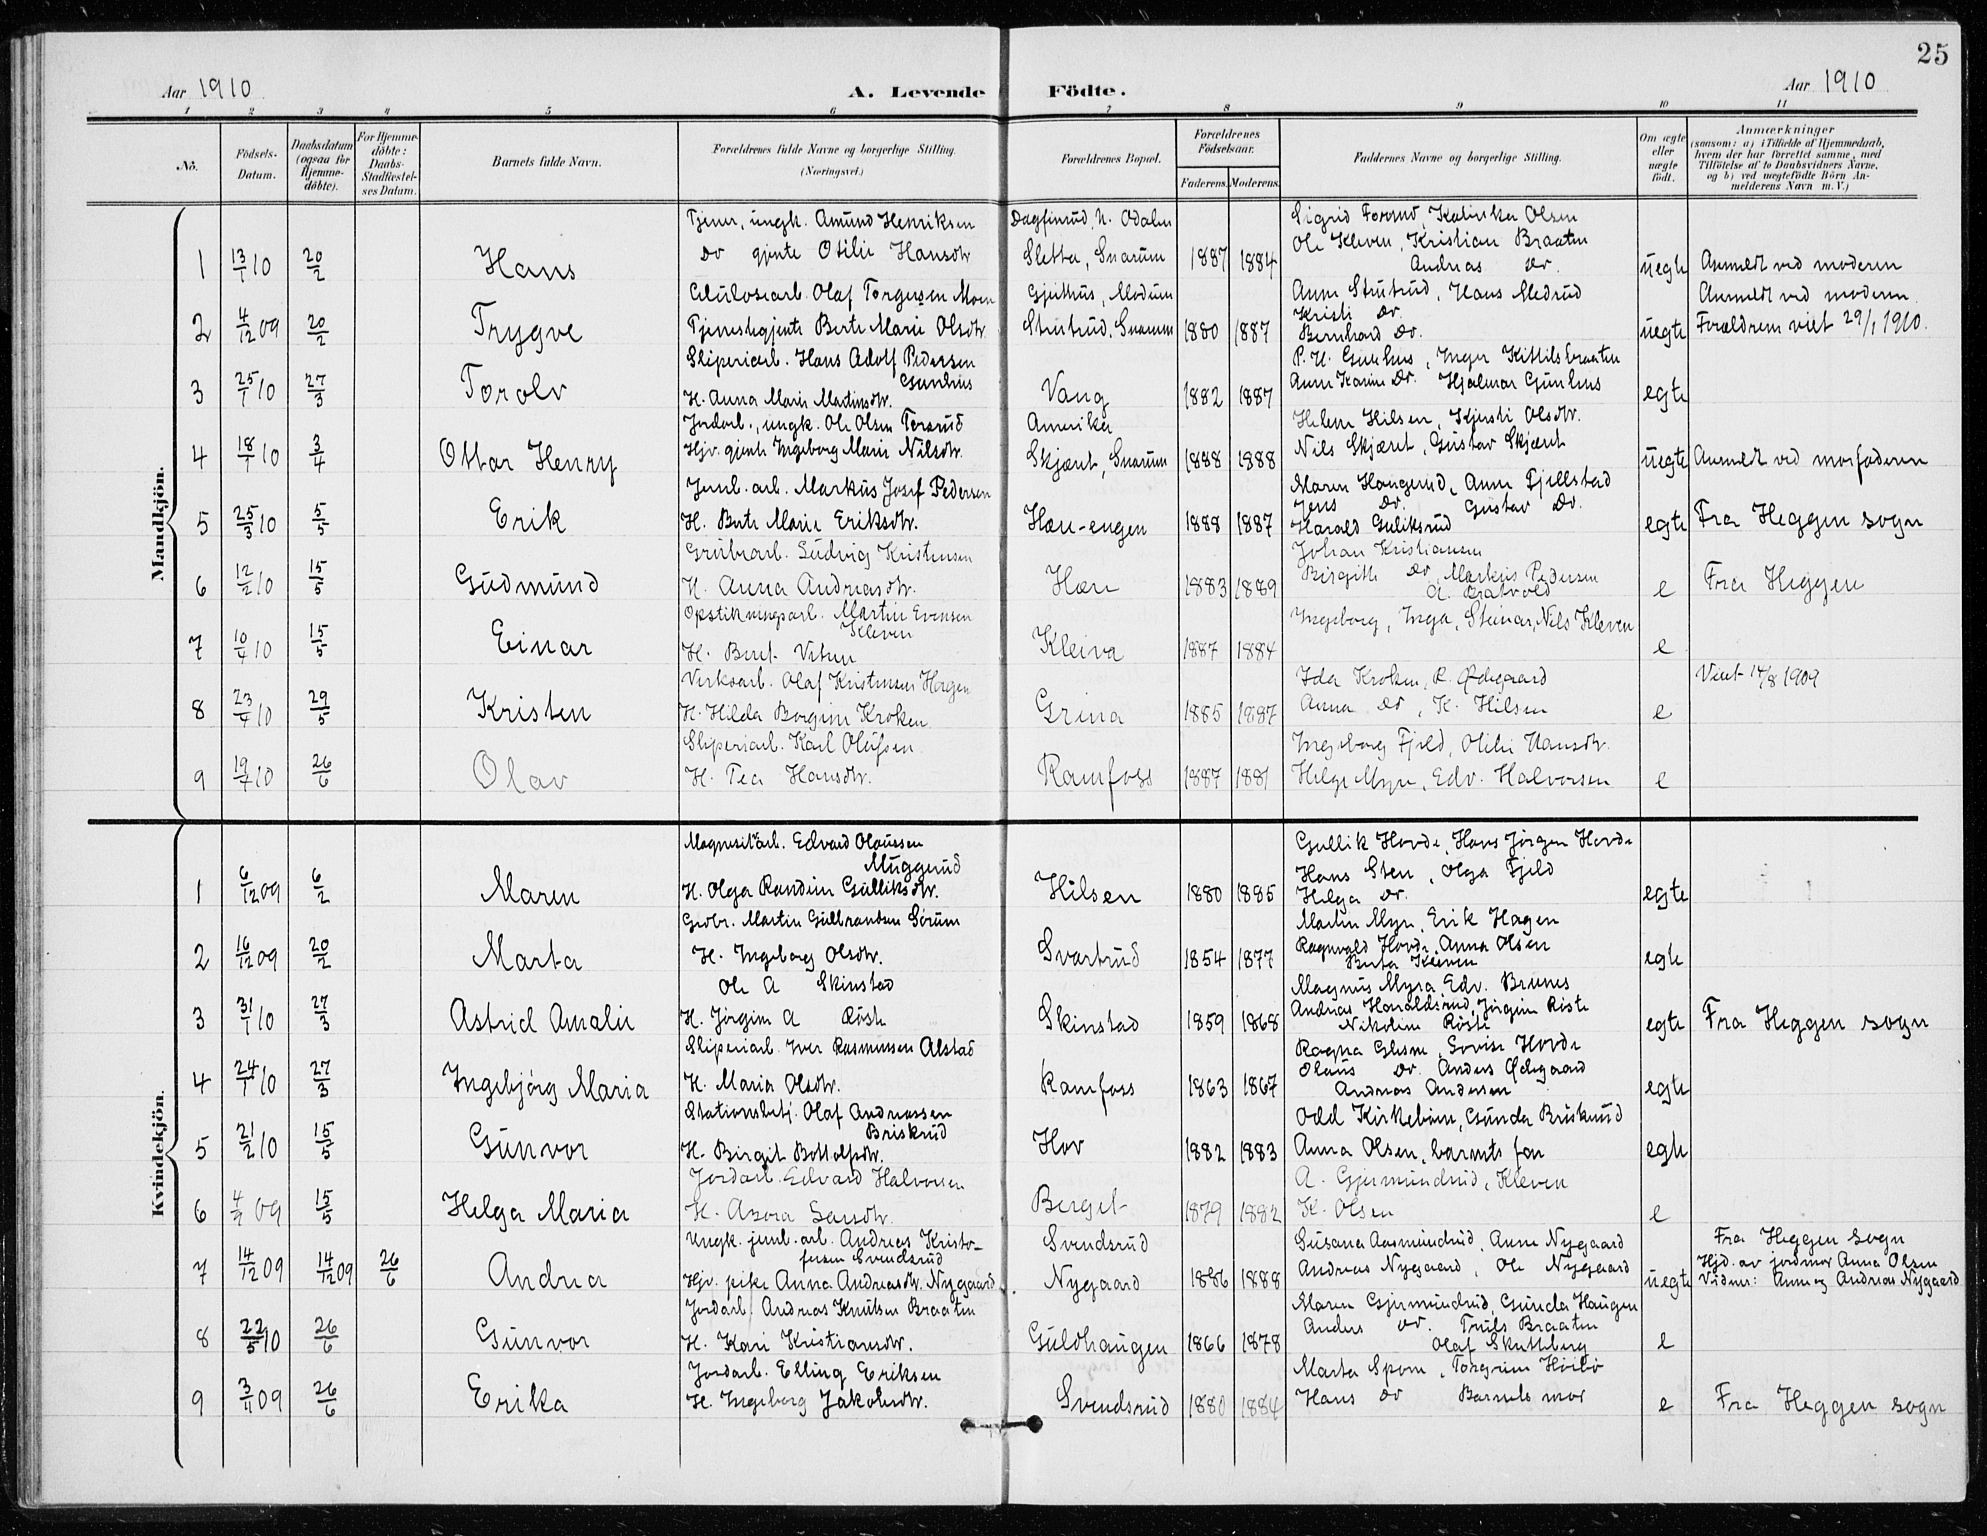 25
Aar 1910
A. Levende Födte.
Aar 1910
1 2 3 4 5 6 7 8 9 10 11
No.
Födsels-Datum.
Daabsdatum (ogsaa for Hjemme-döbte).
For Hjemme-döbte: Daabs-Stadfæstel-ses Datum.
Barnets fulde Navn.
Forældrenes fulde Navne og borgerlige Stilling. (Næringsvei.)
Forældrenes Bopæl.
Forældrenes Födselsaar.
Faderens. Moderens.
Faddernes Navne og borgerlige Stilling.
Om ægte eller uægte födt.
Anmærkninger
(saasom: a) i Tilfælde af Hjemmedaab, hvem der har forrettet samme, med Tilföielse af to Daabsvidners Navne, og b) ved uægtefödte Börn An-melderens Navn m. V.)
Mandkjön.
Tjener, ungk. Amund Henriksen Dagfinrud, N. Odalen Sigrid Forsrud, Katinka Olsen
Do gjente Otilie Hansdtr Sletta, Snarum Ole Kleven, Kristian Braaten
1 13/1 10 20/2 Hans 1887 1884 Andreas Do. uegte Anmeldt ved moderen
Celulosearb. Olaf Torgersen Moen Gjethus, Modum Anne Strutrud, Hans Medrud Anmeldt ved moderen
2 4/12 09 20/2 Trygve Tjenestegjente Berte Marie Olsdtr. Strutrud, Snarum 1880 1887 Kristi Do. Bernhard Do. uegte Forældrene viet 29/1 1910.
Sliperiarb. Hans Adolf Pedersen Gunhus P. H. Gunhus, Inger Kittilsbraaten
3 25/1 10 27/3 Torolv H. Anna Marie Martinsdtr. Vang 1882 1887 Anne Karine Do. Hjalmar Gunhus egte
Jordarb., ungk. Ole Olsen Forsrud Amerika Helene Hilsen, Kjersti Olsdtr.
4 18/1 10 3/4 Ottar Henry Hjv. gjente Ingeborg Marie Nilsdtr. Skjæret, Snarum 1888 1888 Nils Skjæret, Gustav Skjæret uegte Anmeldt ved morfaderen
Jernb. arb. Markus Josef Pedersen Maren Haugerud, Anne Fjellstad
5 25/3 10 5/5 Erik H. Berte Marie Eriksdtr. Hæn-engen 1888 1887 Jens Do. Gustav Do. Harald Guliksrud egte Fra Heggen sogn
Grubearb. Ludvig Kristensen Johan Kristiansen
6 12/2 10 15/5 Gudmund H. Anna Andreasdtr. Hæn 1883 1889 Birgith Do, Markus Pedersen e Fra Heggen
Opstikningsarb. Martin Evensen Kleven Ingeborg, Inga, Steinar, Nils Kleven
7 10/4 10 15/5 Einar H. Kleiva 1887 1884 e
Verksarb. Olaf Kristensen Hagen Ida Kroken, R. Ødegaard Viet 14/8 1909
8 23/4 10 29/5 Kristen H. Hilda Borgine Kroken Grina 1885 1887 Anna Do, K. Hilsen e
Sliperiarb. Karl Olufsen Ingeborg Fjeld, Otilie Hansdtr.
9 19/4 10 26/6 Olav H. Tea Hansdtr. Ramfoss 1887 1881 Helge Myre, Edv. Halvorsen e
Kvindekjön.
Magnesitarb. Edvard Olaussen Muggerud Gullik Hovde, Hans Jørgen Hovde
1 6/12 09 6/2 Maren H. Olga Randine Gulliksdtr. Hilsen 1880 1885 Hans Sten, Olga Fjeld Helga Do. egte
Grdbr. Martin Gulbrandsen Sørum Martin Myre, Erik Hagen
2 16/12 09 20/2 Marta H. Ingeborg Olsdtr. Svartrud 1854 1877 Ragnvald Hovde, Anna Olsen Berta Kleven egte
Ole A Skinstad Magnus Myra Edv. Brunes
3 31/1 10 27/3 Astrid Amalie H. Jørgine A Røste Skinstad 1859 1868 Andreas Haraldsrud, Jørgine Røste Nikoline Røste egte Fra Heggen sogn
Sliperiarb. Iver Rasmussen Alstad Ragna Glesne, Lovise Hovde
4 24/1 10 27/3 Ingebjørg Maria H. Maria Olsdtr. Ramfoss 1863 1867 Olaus Do. Anders Ødegaard Andreas Andersen egte
Stationsbetj. Olaf Andreassen Briskrud Odd Kirkebøen, Gunda Briskerud
5 21/2 10 15/5 Gunvor H. Birgit Bottolfsdtr. Hov 1882 1883 Anna Olsen, barnets far egte
Jordarb. Edvard Halvorsen A. Gjermundrud, Kleven
6 09 15/5 Helga Maria H. Larsdtr. Berget 1879 1882 K. Olsen e
Ungk. jernb. arb. Andreas Kristo-fersen Svendsrud Svendsrud Susana Aasmundrud, Anne Nygaard Fra Heggen sogn
7 14/12 09 14/12 09 26/6 Andrea Hjv. pike Anna Andreasdtr. Nygaard. Nygaard 1886 1888 Andreas Nygaard, Ole Nygaard uegte Hjd. av jordmor Anna Olsen Vidner: Anne og Andreas Nygaard
Jordarb. Andreas Knutsen Braaten Maren Gjermundrud, Gunda Haugen
8 22/5 10 26/6 Gunvor H. Kari Kristiansdtr. Guldhaugen 1866 1878 Anders Do. Truls Braaten Olaf Skuttberg e
Jordarb. Elling Eriksen Marta Sporn, Torgrim Høibø
9 3/11 09 26/6 Erika H. Ingeborg Jakobsdtr. Svendsrud 1880 1884 Hans Do Barnets mor e Fra Heggen sogn